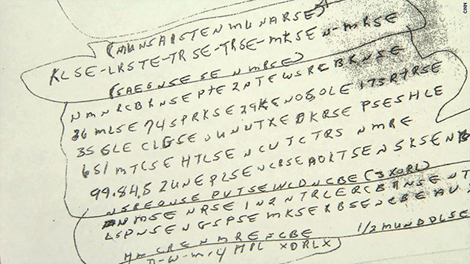 (MUNSAISTENMUNARSE)
KLSE-LRSTE-TRSE-TRSE-MKSEN-MRSE
(SAEGNSE SE N MRSE)
NMNRCBRNSEPTE2NTEWSRCBRNSE
36 MLSE 74 SPRKSE 29KENOSOLE 173RTRSE
35 GLE CLGSE UNUTXE BKRSE PSESHLE
651 MTCSE HTLSE N CUTCTRS NMRE
99.84.5 ZUNE PLSE NCRSE AOLTSENSKSENB
NSREONSE PVTSEWLD NCBE (3XORL)
NRSE IN2NTRLERCBRNSENT
LSPNSENGSPSE MKSERBSENCBEAU
NMRENCBE 1/2MUNDDLSE
D-W-M-Y MPL XDRLX